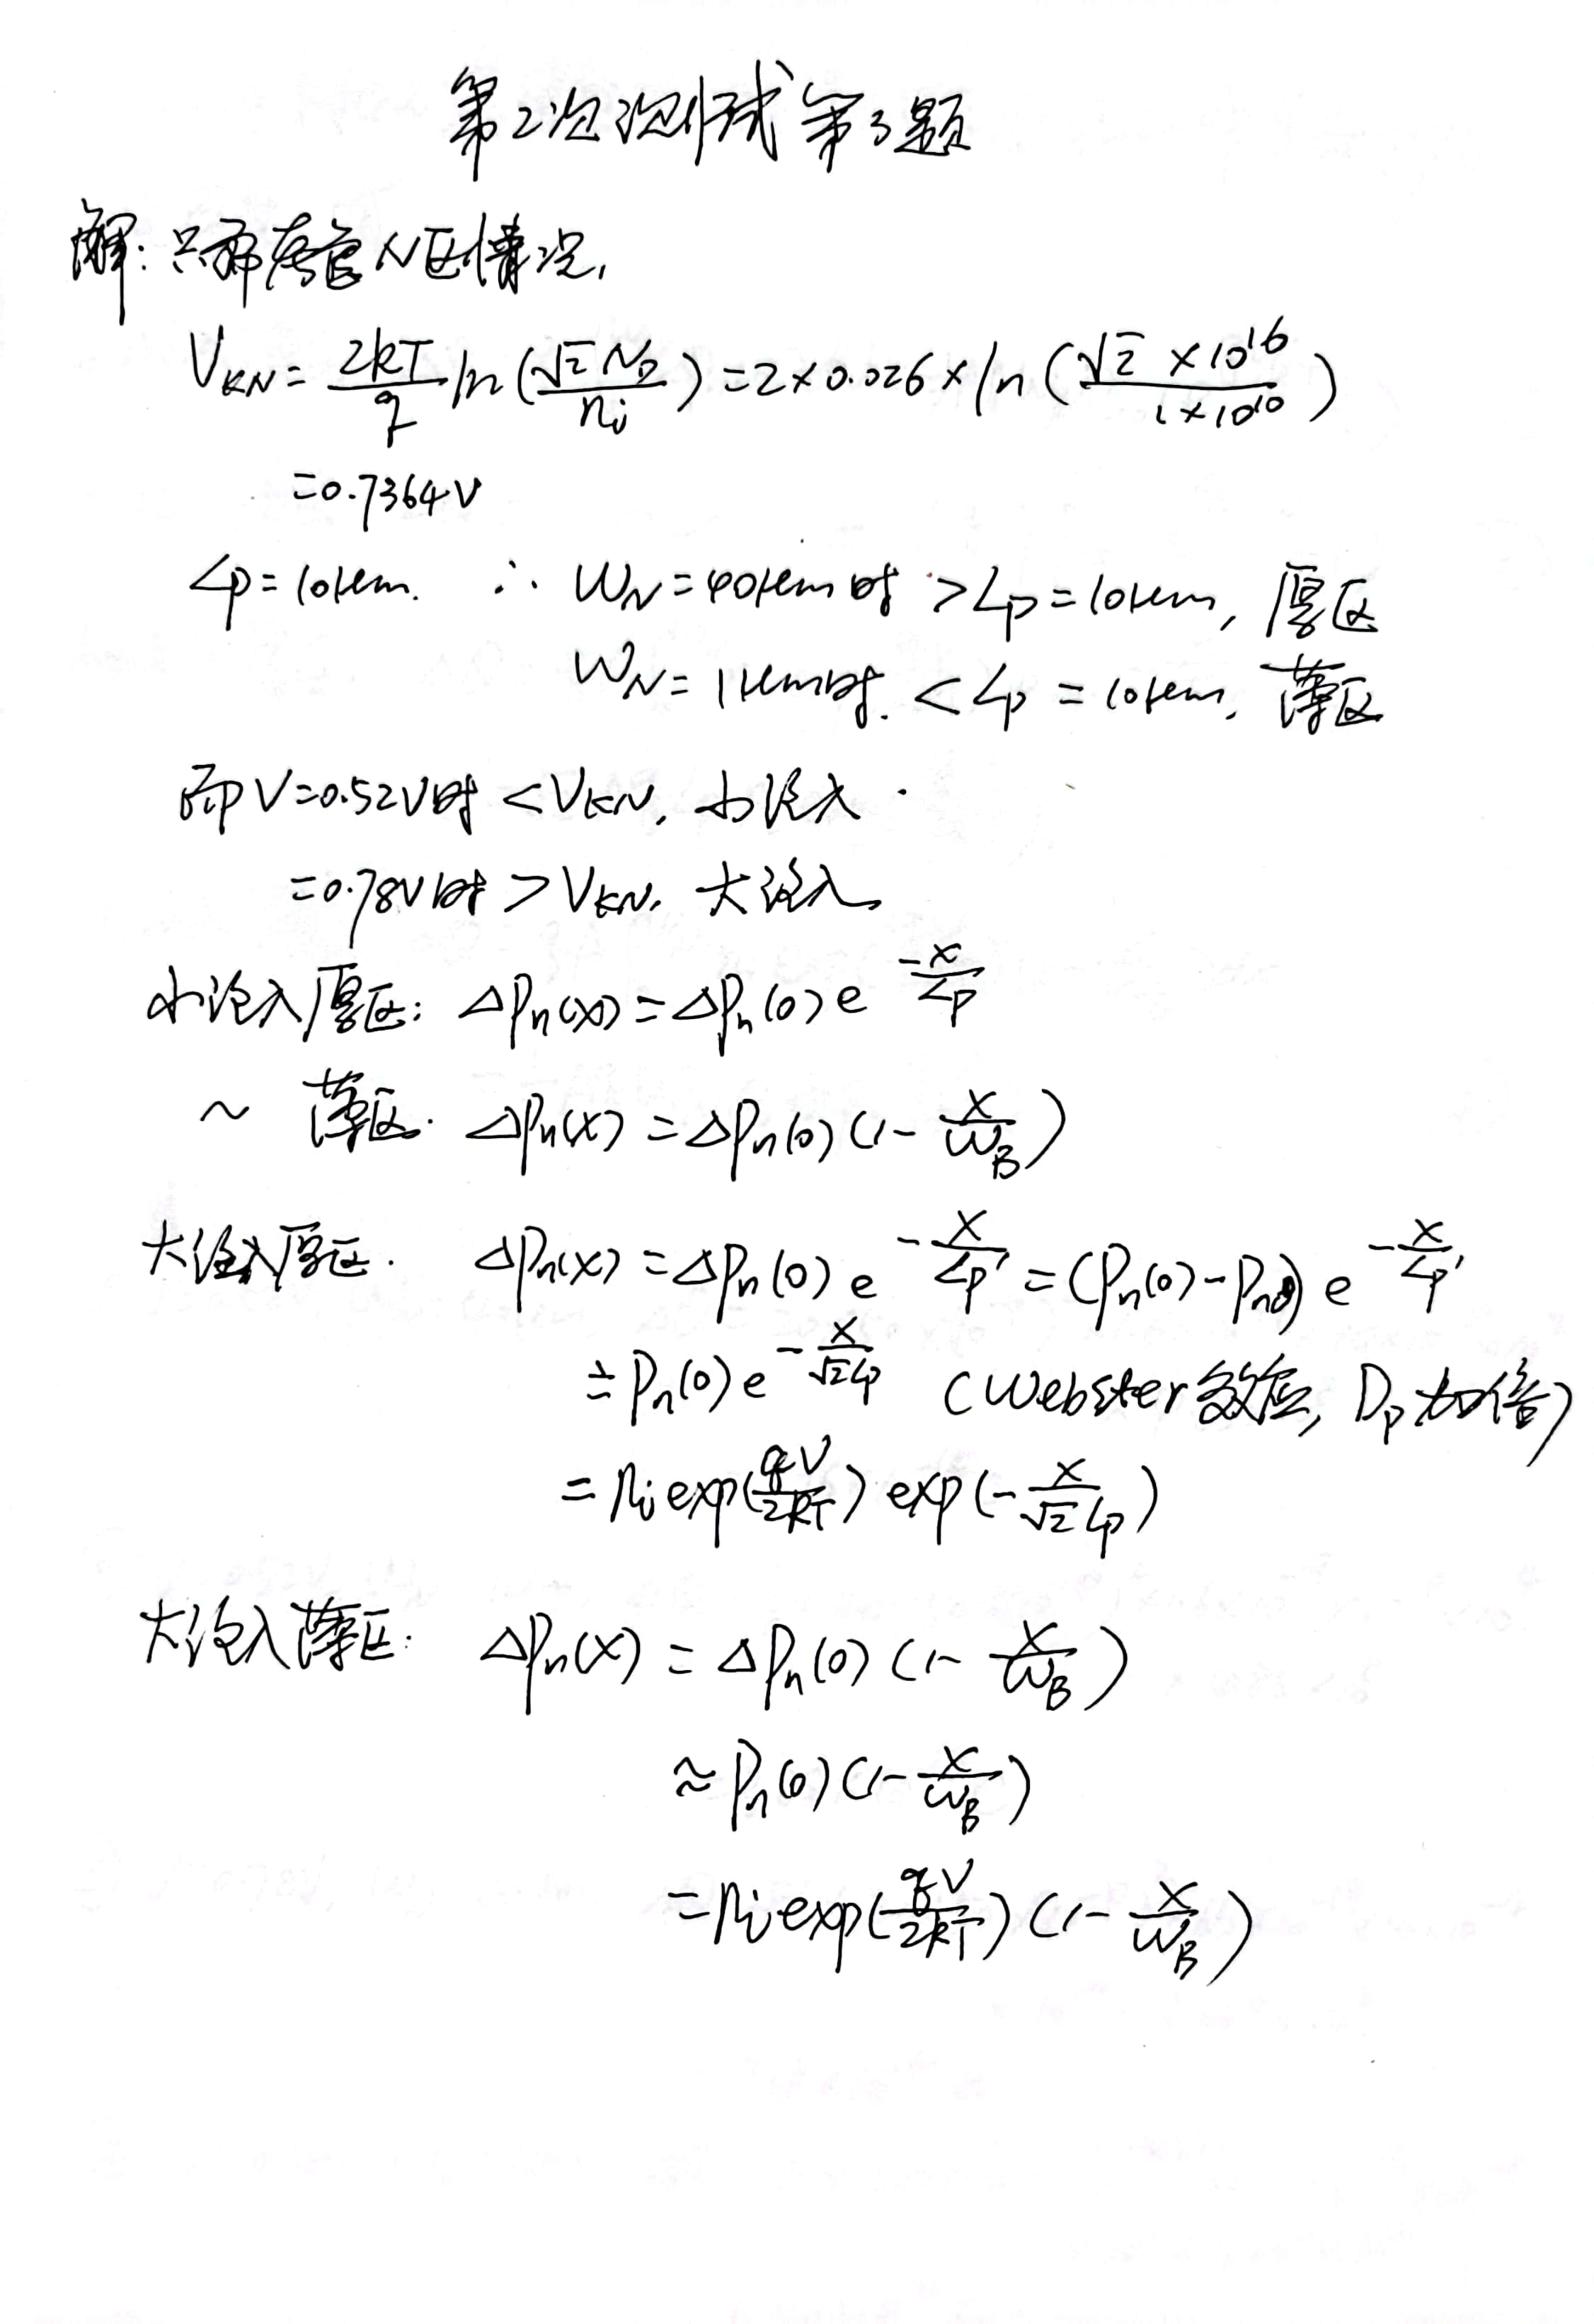 第2次测试第3题
解：只需考虑N区情况，
V_KN = 2kT/q ln(√2 N_D/n_i) = 2×0.026×ln(√2 ×10^16/1×10^10)
=0.7364V
Lp=10μm. ∴ W_N=40μm时 >Lp=10μm, 厚区
W_N=1μm时. <Lp=10μm, 薄区
而V=0.52V时 <V_KN, 小注入.
=0.78V时 >V_KN, 大注入.
小注入厚区: ΔPn(x)=ΔPn(0)e^(-x/Lp)
~ 薄区. ΔPn(x)=ΔPn(0)(1-x/W_B)
大注入厚区. ΔPn(x)=ΔPn(0)e^(-x/Lp')=(Pn(0)-Pn0)e^(-x/Lp')
≐Pn(0)e^(-x/√2Lp) (Webster效应, Dp加倍)
=n_i exp(qV/2kT) exp(-x/√2Lp)
大注入薄区: ΔPn(x)=ΔPn(0)(1-x/W_B)
≈Pn(0)(1-x/W_B)
=n_i exp(qV/2kT)(1-x/W_B)